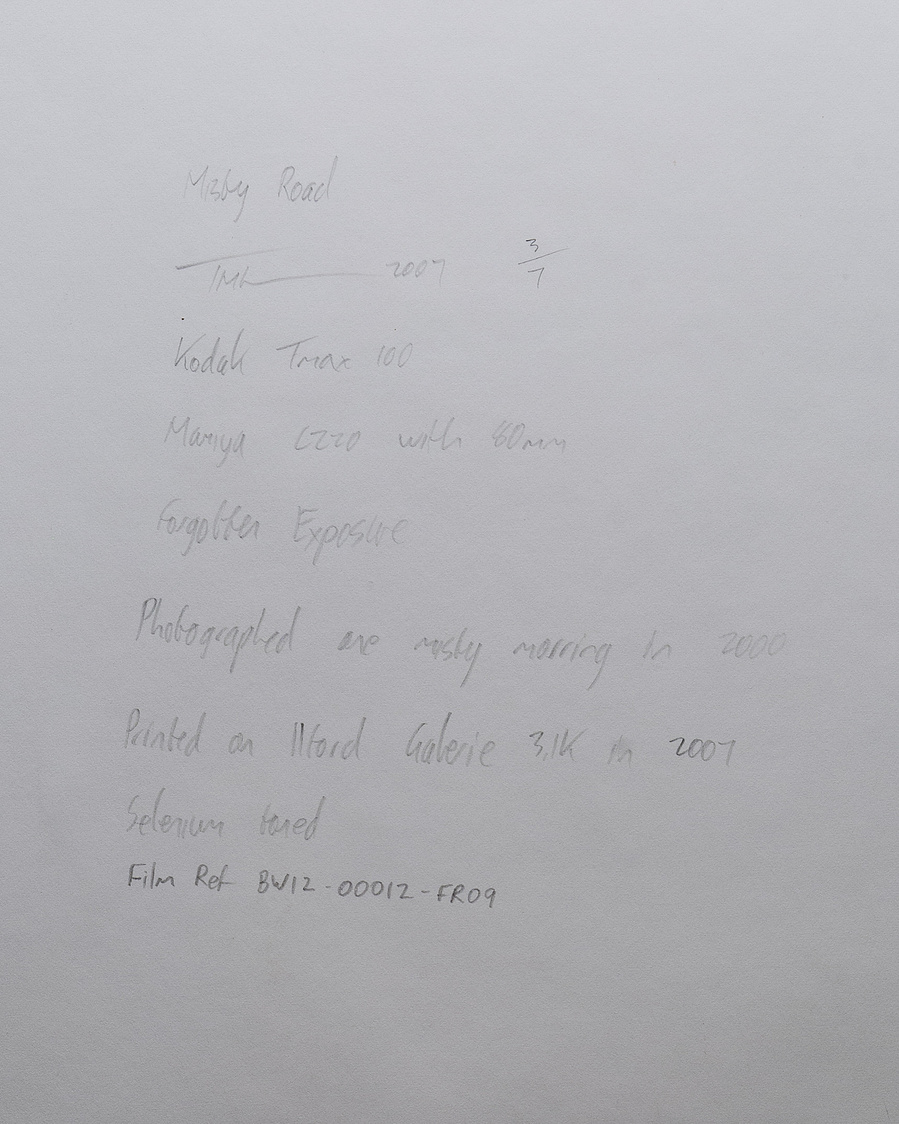 Misty Road
2007 3/7
Kodak Tmax 100
Mamiya C220 with 80mm
Forgotten Exposure
Photographed one misty morning in 2000
Printed on Ilford Galerie 3.1K in 2007
Selenium toned
Film Ref BW12-00012-FR09